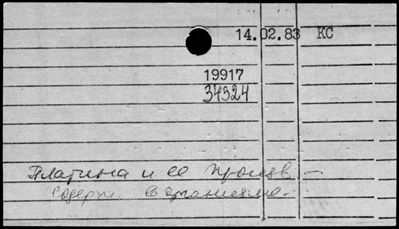 14.02.83 КС
19917
34324
Платина и ее произв. –
содерж. в организме.